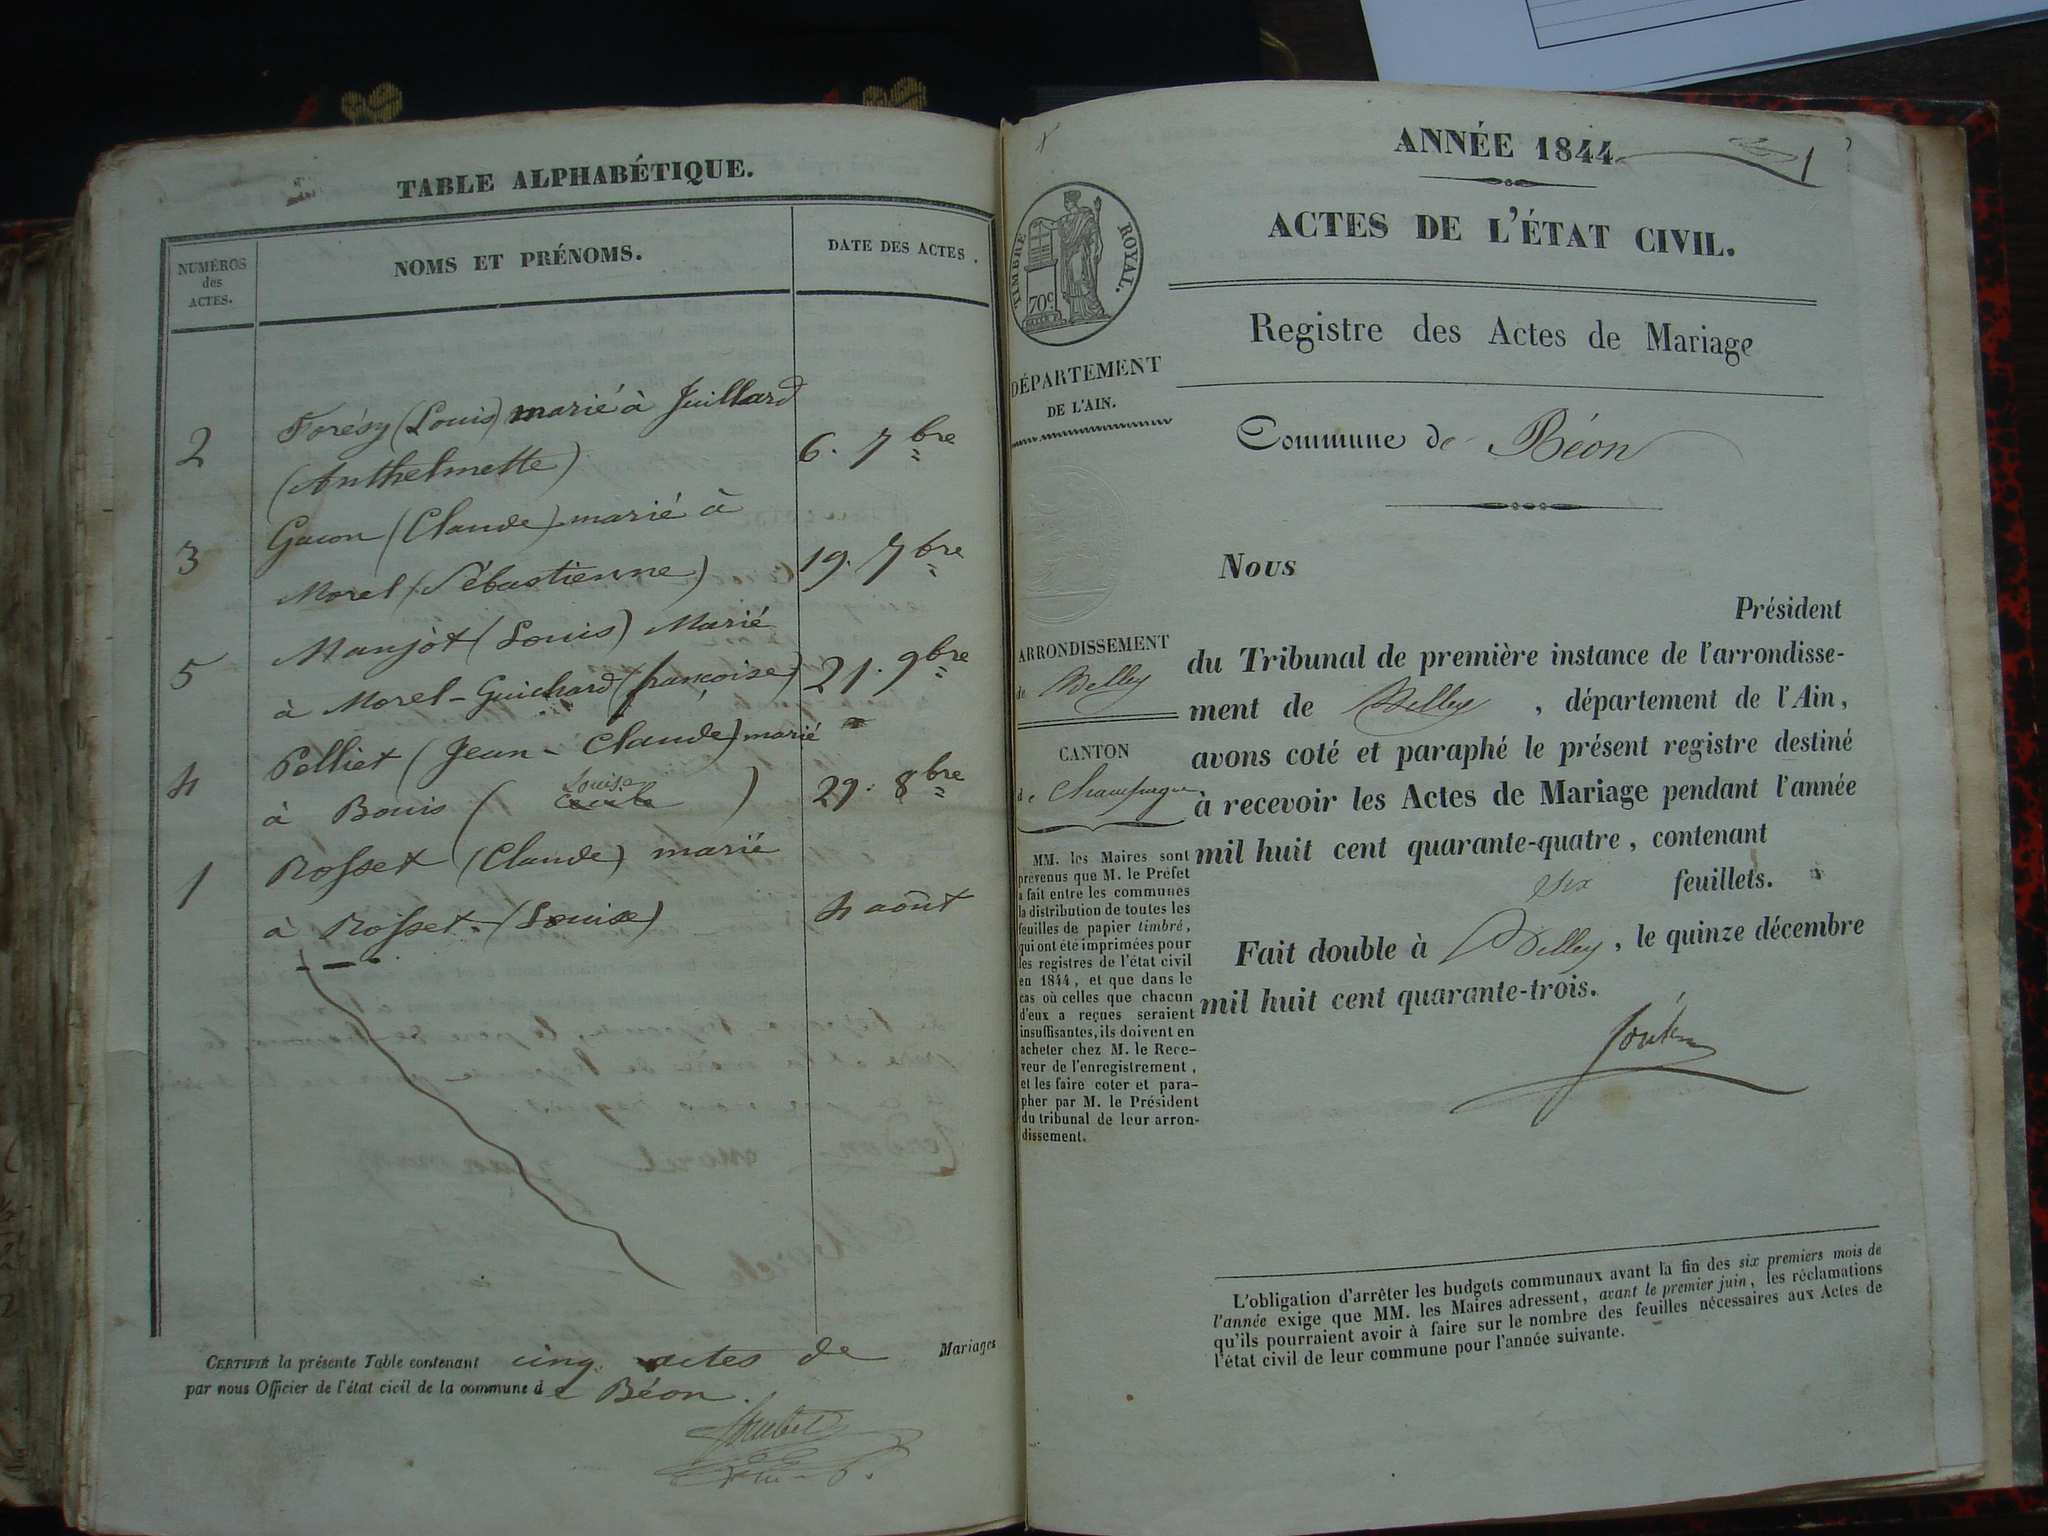 TABLE ALPHABÉTIQUE.
NUMÉROS
des
ACTES.
NOMS ET PRÉNOMS.
DATE DES ACTES.
2 Forésy (Louis) marié à Juillard
(Anthelmette) 6. 7bre
3 Gacon (Claude) marié à
Morel (Sébastienne) 19. 7bre
5 Manjot (Louis) Marié
à Morel-Guichard (françoise) 21. 9bre
4 Pelliet (Jean-Claude) marié
à Bouis (Louise) 29. 8bre
1 Rosset (Claude) marié
à Rosset (Louise) 4 août
CERTIFIÉ la présente Table contenant cinq actes de Mariages
par nous Officier de l'état civil de la commune de Béon.
ANNÉE 1844
1
ACTES DE L'ÉTAT CIVIL.
TIMBRE ROYAL.
70c
Registre des Actes de Mariage
DÉPARTEMENT
DE L'AIN.
Commune de Béon
ARRONDISSEMENT
de Belley
CANTON
de Champagne
MM. les Maires sont
prévenus que M. le Préfet
a fait entre les communes
la distribution de toutes les
feuilles de papier timbré,
qui ont été imprimées pour
les registres de l'état civil
en 1844, et que dans le
cas où celles que chacun
d'eux a reçues seraient
insuffisantes, ils doivent en
acheter chez M. le Rece-
veur de l'enregistrement,
et les faire coter et para-
pher par M. le Président
du tribunal de leur arron-
dissement.
Nous
Président
du Tribunal de première instance de l'arrondisse-
ment de Belley, département de l'Ain,
avons coté et paraphé le présent registre destiné
à recevoir les Actes de Mariage pendant l'année
mil huit cent quarante-quatre, contenant
six feuillets.
Fait double à Belley, le quinze décembre
mil huit cent quarante-trois.
L'obligation d'arrêter les budgets communaux avant la fin des six premiers mois de
l'année exige que MM. les Maires adressent, avant le premier juin, les réclamations
qu'ils pourraient avoir à faire sur le nombre des feuilles nécessaires aux Actes de
l'état civil de leur commune pour l'année suivante.